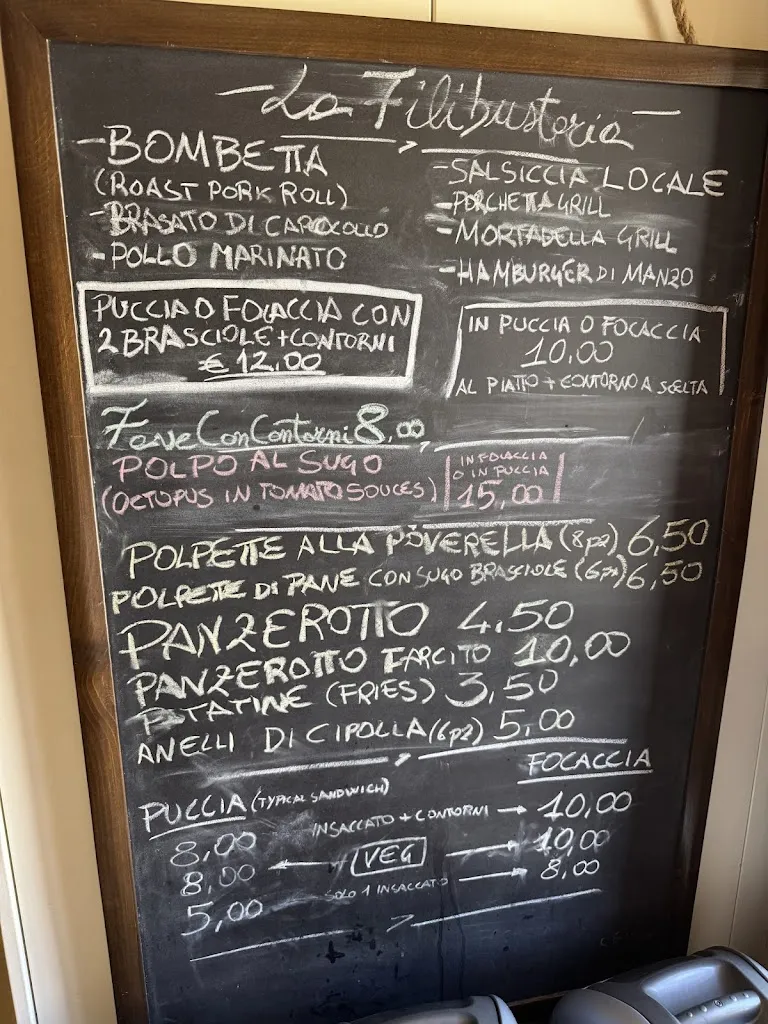 La Filibusteria
-BOMBETTA
(ROAST PORK ROLL)
-BRASATO DI CAPOCOLLO
-POLLO MARINATO
-SALSICCIA LOCALE
-PORCHETTA GRILL
-MORTADELLA GRILL
-HAMBURGER DI MANZO
PUCCIA O FOCACCIA CON
2 BRASCIOLE + CONTORNI
€ 12,00
IN PUCCIA O FOCACCIA
10,00
AL PIATTO + CONTORNO A SCELTA
Fave Con Contorni 8,00
POLPO AL SUGO
(OCTOPUS IN TOMATO SOUCES)
IN FOCACCIA
O IN PUCCIA
15,00
POLPETTE ALLA POVERELLA (8pz) 6,50
POLPETTE DI PANE CON SUGO BRASCIOLE (6pz) 6,50
PANZEROTTO 4,50
PANZEROTTO FARCITO 10,00
PATATINE (FRIES) 3,50
ANELLI DI CIPOLLA (6pz) 5,00
FOCACCIA
PUCCIA (TYPICAL SANDWICH)
8,00 INSACCATO + CONTORNI → 10,00
8,00 ← VEG → 10,00
5,00 SOLO 1 INSACCATO → 8,00